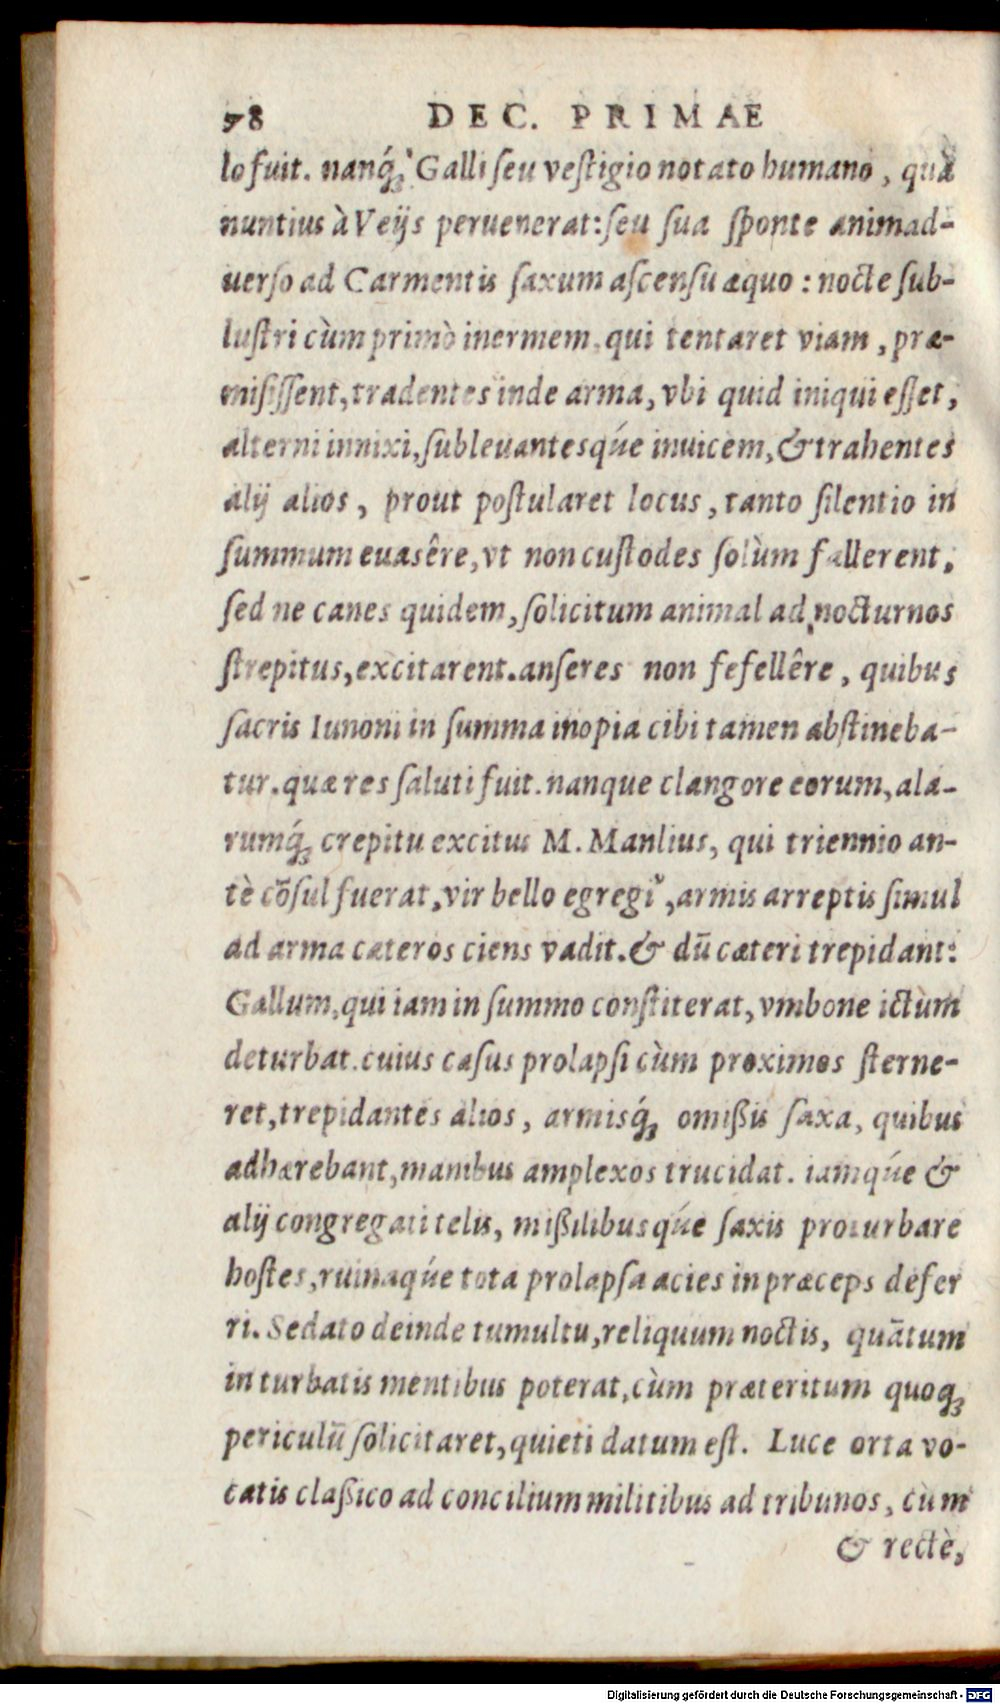 98 DEC. PRIMAE
lo fuit. nanq́; Galli ſeu veſtigio notato humano, quà
nuntius à Veijs peruenerat: ſeu ſua ſponte animad-
uerſo ad Carmentis ſaxum aſcenſu æquo: nocte ſub-
luſtri cùm primò inermem, qui tentaret viam, præ-
miſiſſent, tradentes inde arma, vbi quid iniqui eſſet,
alterni innixi, ſubleuantesq́ue inuicem, & trahentes
alij alios, prout poſtularet locus, tanto ſilentio in
ſummum euasêre, vt non cuſtodes ſolùm fallerent,
ſed ne canes quidem, ſolicitum animal ad nocturnos
ſtrepitus, excitarent. anſeres non fefellêre, quibus
ſacris Iunoni in ſumma inopia cibi tamen abſtineba-
tur. quæ res ſaluti fuit. nanque clangore eorum, ala-
rumq́; crepitu excitus M. Manlius, qui triennio an-
tè cõſul fuerat, vir bello egregiꝰ, armis arreptis ſimul
ad arma cæteros ciens vadit. & dũ cæteri trepidant:
Gallum, qui iam in ſummo conſtiterat, vmbone ictùm
deturbat. cuius caſus prolapſi cùm proximos ſterne-
ret, trepidantes alios, armisq́; omißis ſaxa, quibus
adhærebant, manibus amplexos trucidat. iamq́ue &
alij congregati telis, mißilibusq́ue ſaxis proturbare
hoſtes, ruinaq́ue tota prolapſa acies in præceps defer
ri. Sedato deinde tumultu, reliquum noctis, quãtum
in turbatis mentibus poterat, cùm præteritum quoq;
periculũ ſolicitaret, quieti datum eſt. Luce orta vo-
catis claßico ad concilium militibus ad tribunos, cùm
& rectè,
Digitalisierung gefördert durch die Deutsche Forschungsgemeinschaft - DFG